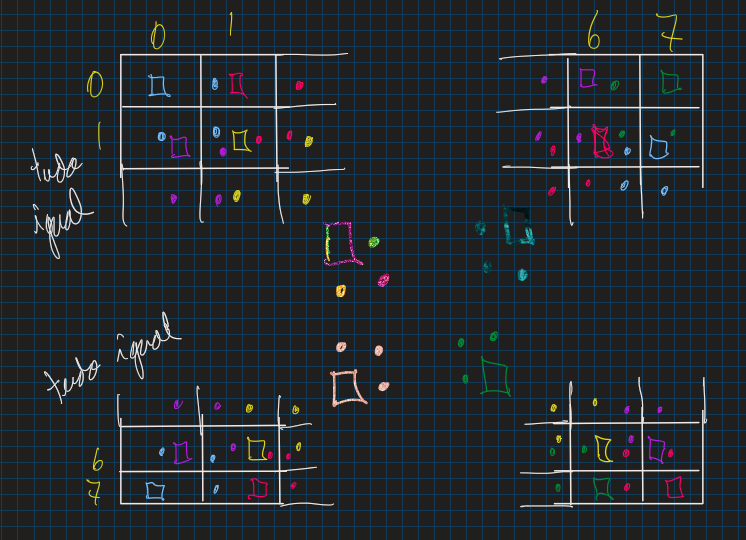 0 1 6 7
0
1
tudo
igual
tudo igual
6
7